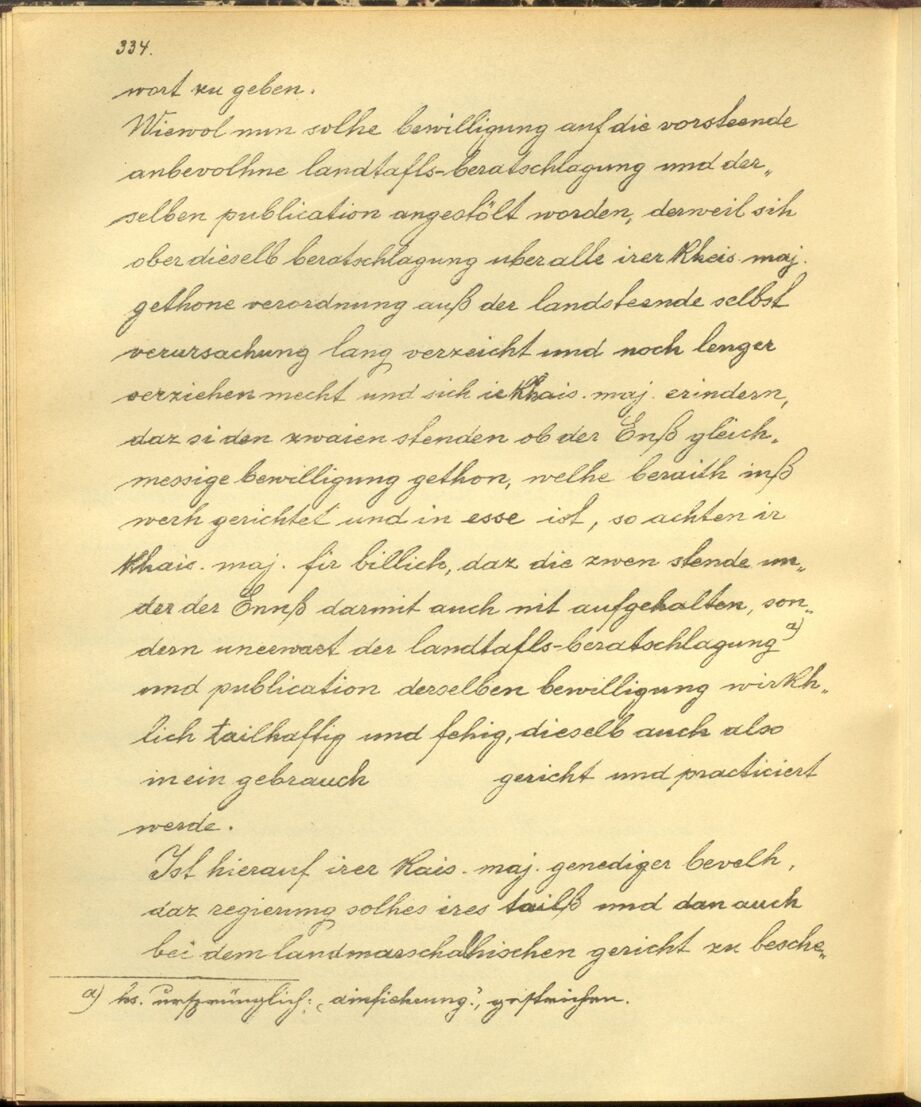 334.
wort zu geben.
Wiewol nun solhe bewilligung auf die vorsteende
anbevolhne landtafls-beratschlagung und der„
selben publication angestölt worden, derweil sih
ober dieselb beratschlagung uber alle irer Kheis. maj.
gethone verordnung auß der landsteende selbst
verursachung lang verzeicht und noch lenger
verziehen mecht und sich ie Khais. maj. erindern,
daz si den zwaien stenden ob der Enß gleich„
messige bewilligung gethon, welhe beraith inß
werh gerichtet und in esse ist, so achten ir
Khais. maj. fir billich, daz die zwen stende un„
der der Ennß darmit auch nit aufgehalten, son„
dern unerwart der landtafls-beratschlagung a)
und publication derselben bewilligung wirkh„
lich tailhaftig und fehig, dieselb auch also
in ein gebrauch gericht und practiciert
werde.
Ist hierauf irer Kais. maj. genediger bevelh,
daz regierung solhes ires tailß und dan auch
bei dem landmarschalhischen gericht zu besche„
a) hs. ursprünglich: „einsichnung", gestrichen.